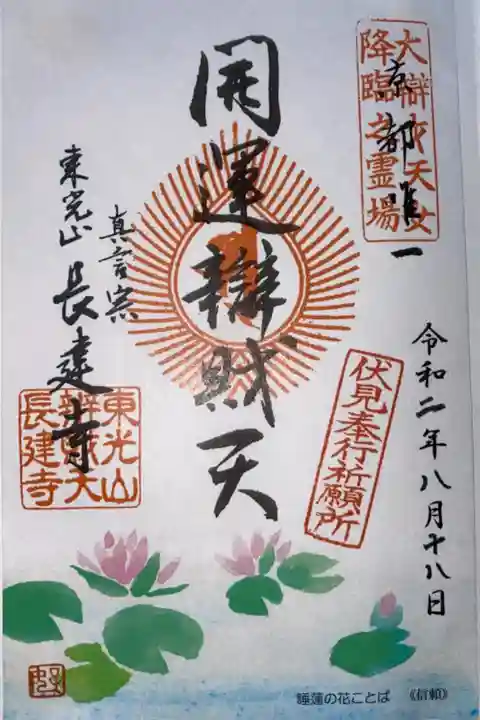 大辯才天女
降臨之霊場
京都唯一
令和二年八月十八日
開運辯財天
伏見奉行祈願所
真言宗
東光山 長建寺
東光山
辨財天
長建寺
睡蓮の花ことば 《信頼》